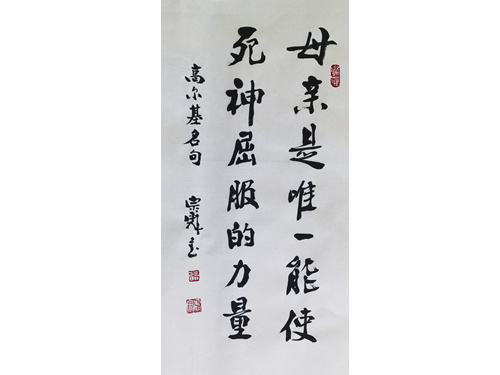 母亲是唯一能使
死神屈服的力量
高尔基名句